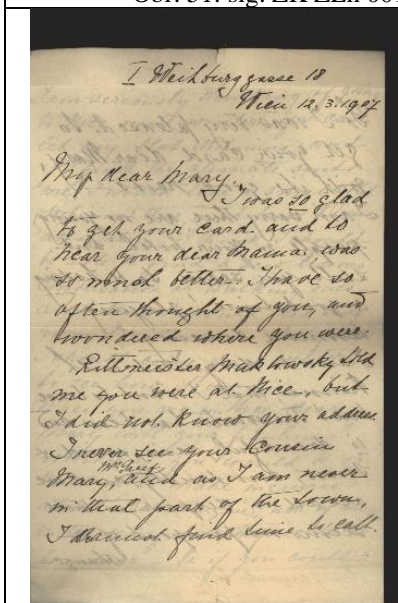 I Weihburggasse 18
Wien 12.3.1907
My dear Mary.
I was so glad
to get your card and to
hear your dear Mama was
so much better. I have so
often thought of you, and
wondered where you were.
Rittmeister Maklowsky told
me you were at Nice, but
I did not know your address
I never see your Cousin
Mary, and as I am never
in that part of the town,
I cannot find time to call.